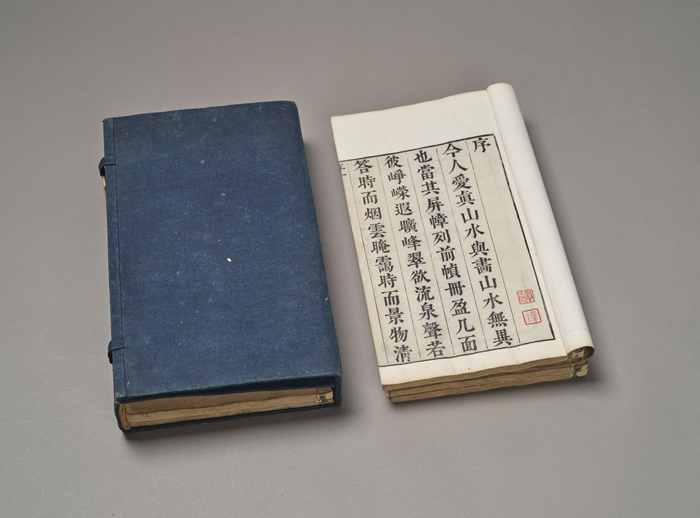 序
今人愛真山水與畵山水無異
也當其屏幛列前幀冊盈几面
彼崢嶸遐曠峰翠欲流泉聲若
答時而烟雲晻靄時而景物清